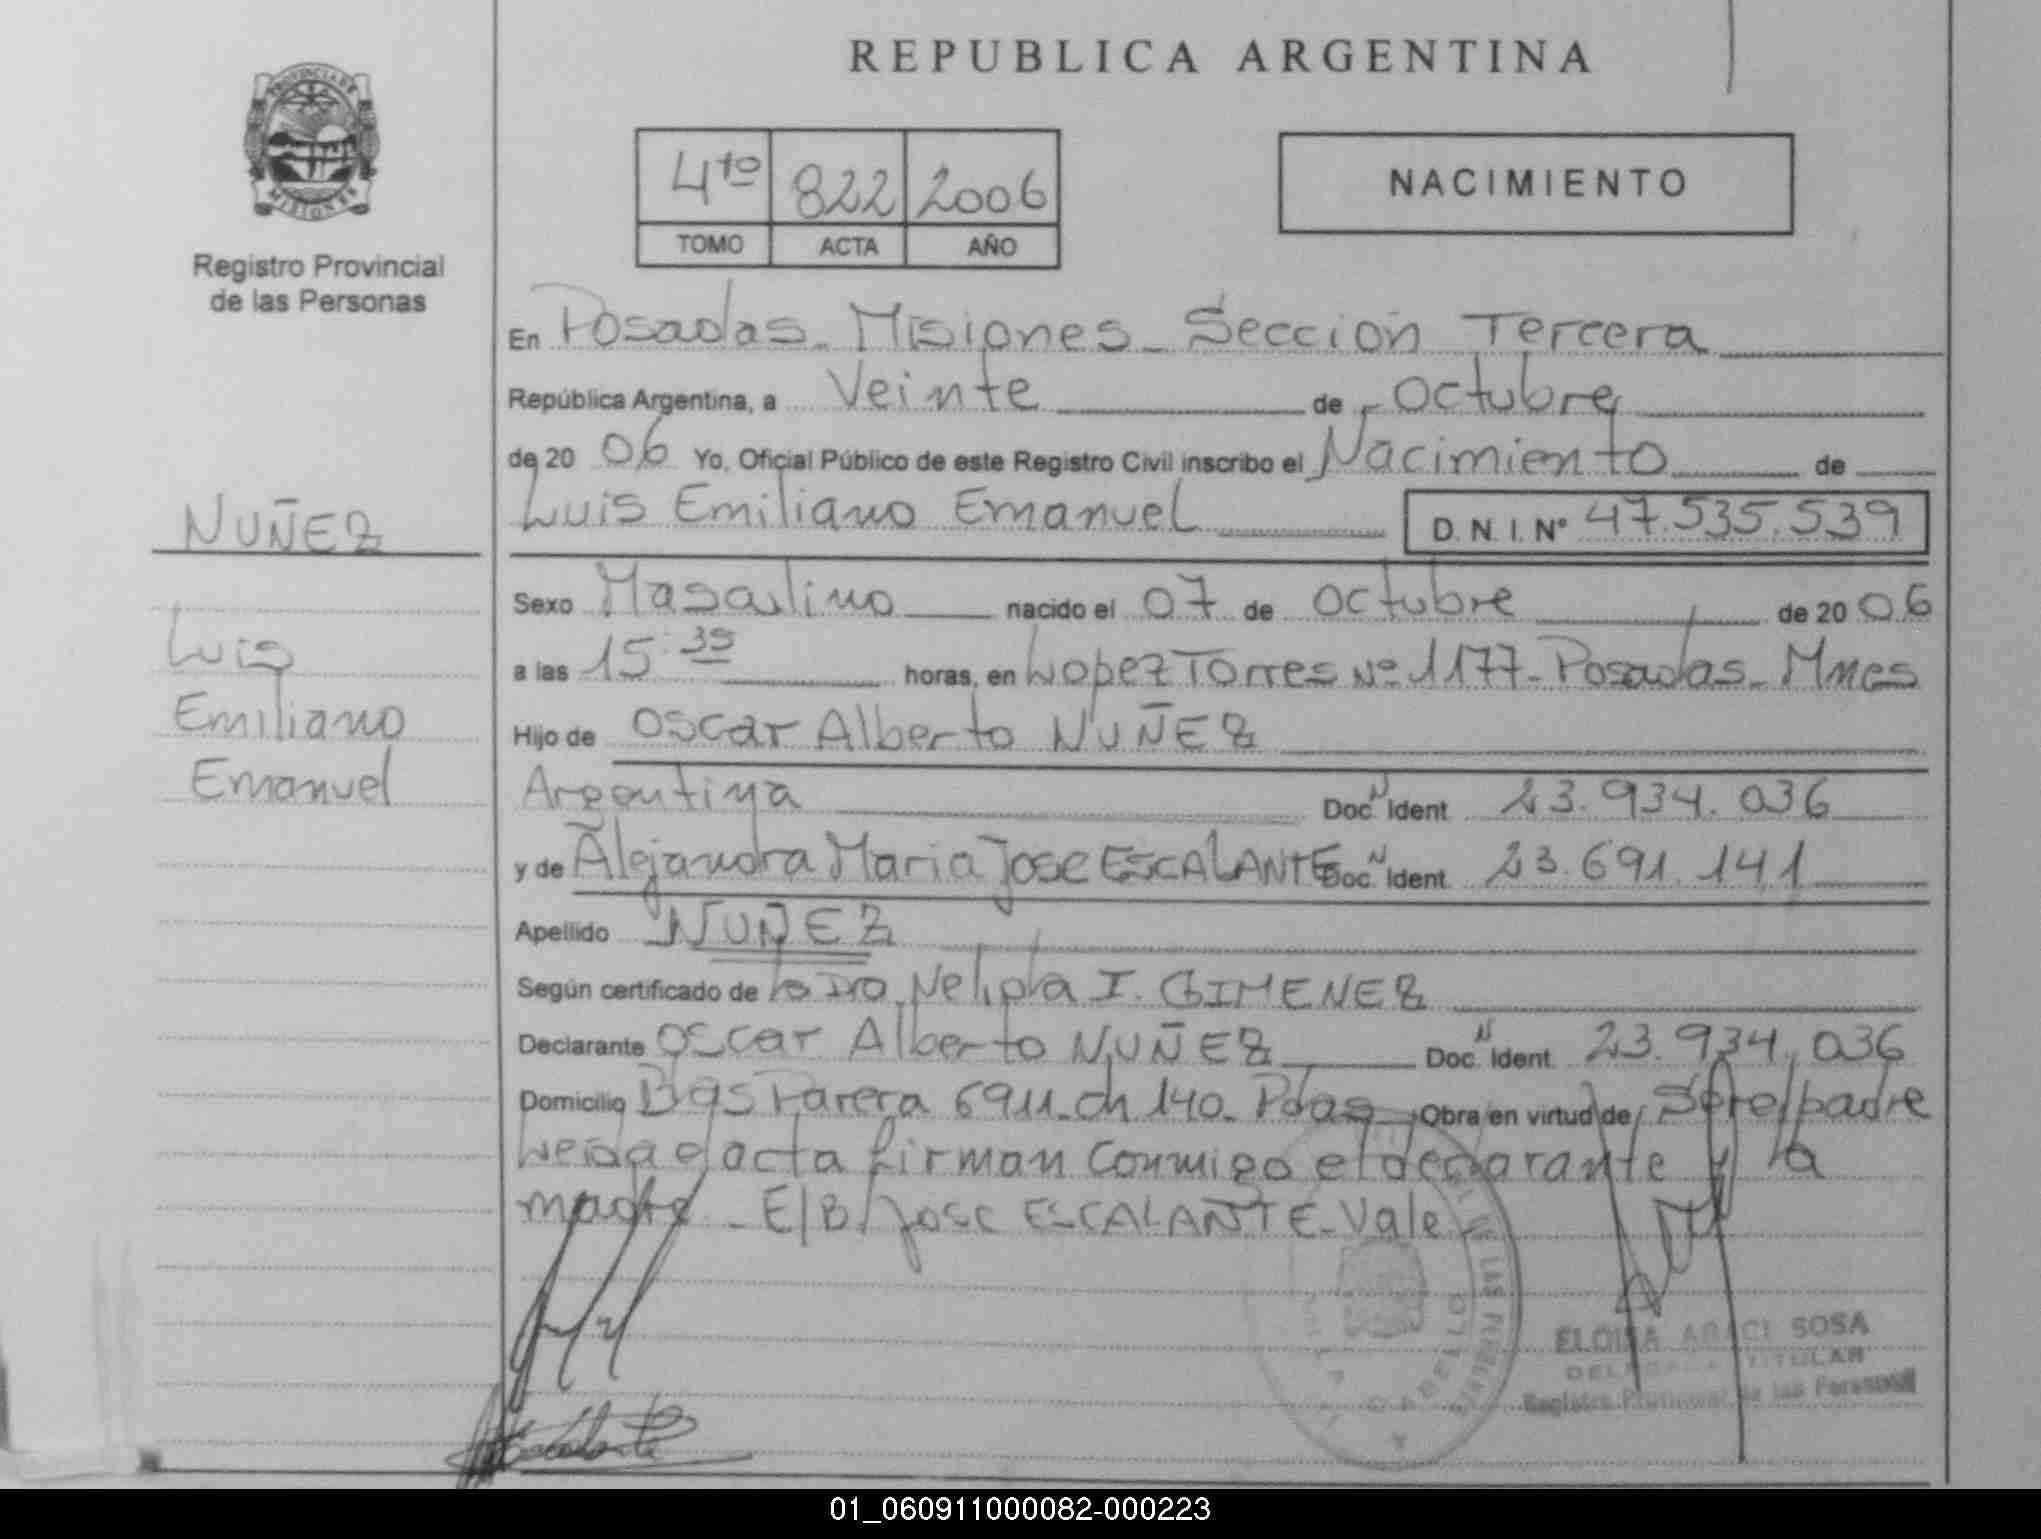 REPUBLICA ARGENTINA
PROVINCIA DE
MISIONES
Registro Provincial
de las Personas
4to 822 2006
TOMO ACTA AÑO
NACIMIENTO
En Posadas - Misiones - Sección Tercera
República Argentina, a Veinte de octubre
de 20 06 Yo, Oficial Público de este Registro Civil inscribo el Nacimiento de
Luis Emiliano Emanuel D. N. I. Nº 47.535.539
NUÑEZ
Luis
Emiliano
Emanuel
Sexo Masculino nacido el 07 de octubre de 20 06
a las 15:39 horas, en Lopez Torres Nº 1177 - Posadas - Mnes
Hijo de Oscar Alberto NUÑEZ
Argentina Doc. N Ident 23.934.036
y de Alejandra Maria Jose ESCALANTE Doc. N Ident. 23.691.141
Apellido NUÑEZ
Según certificado de la Dra. Nelida I. GIMENEZ
Declarante Oscar Alberto NUÑEZ Doc. N Ident. 23.934.036
Domicilio Blas Parera 6911 - ch 140 - Pdas Obra en virtud de Ser el padre
Leida el acta firman conmigo el declarante y la
madre - E/B/ Jose ESCALANTE - Vale
ELOISA ARACI SOSA
DELEGADA TITULAR
Registro Provincial de las Personas
01_060911000082-000223